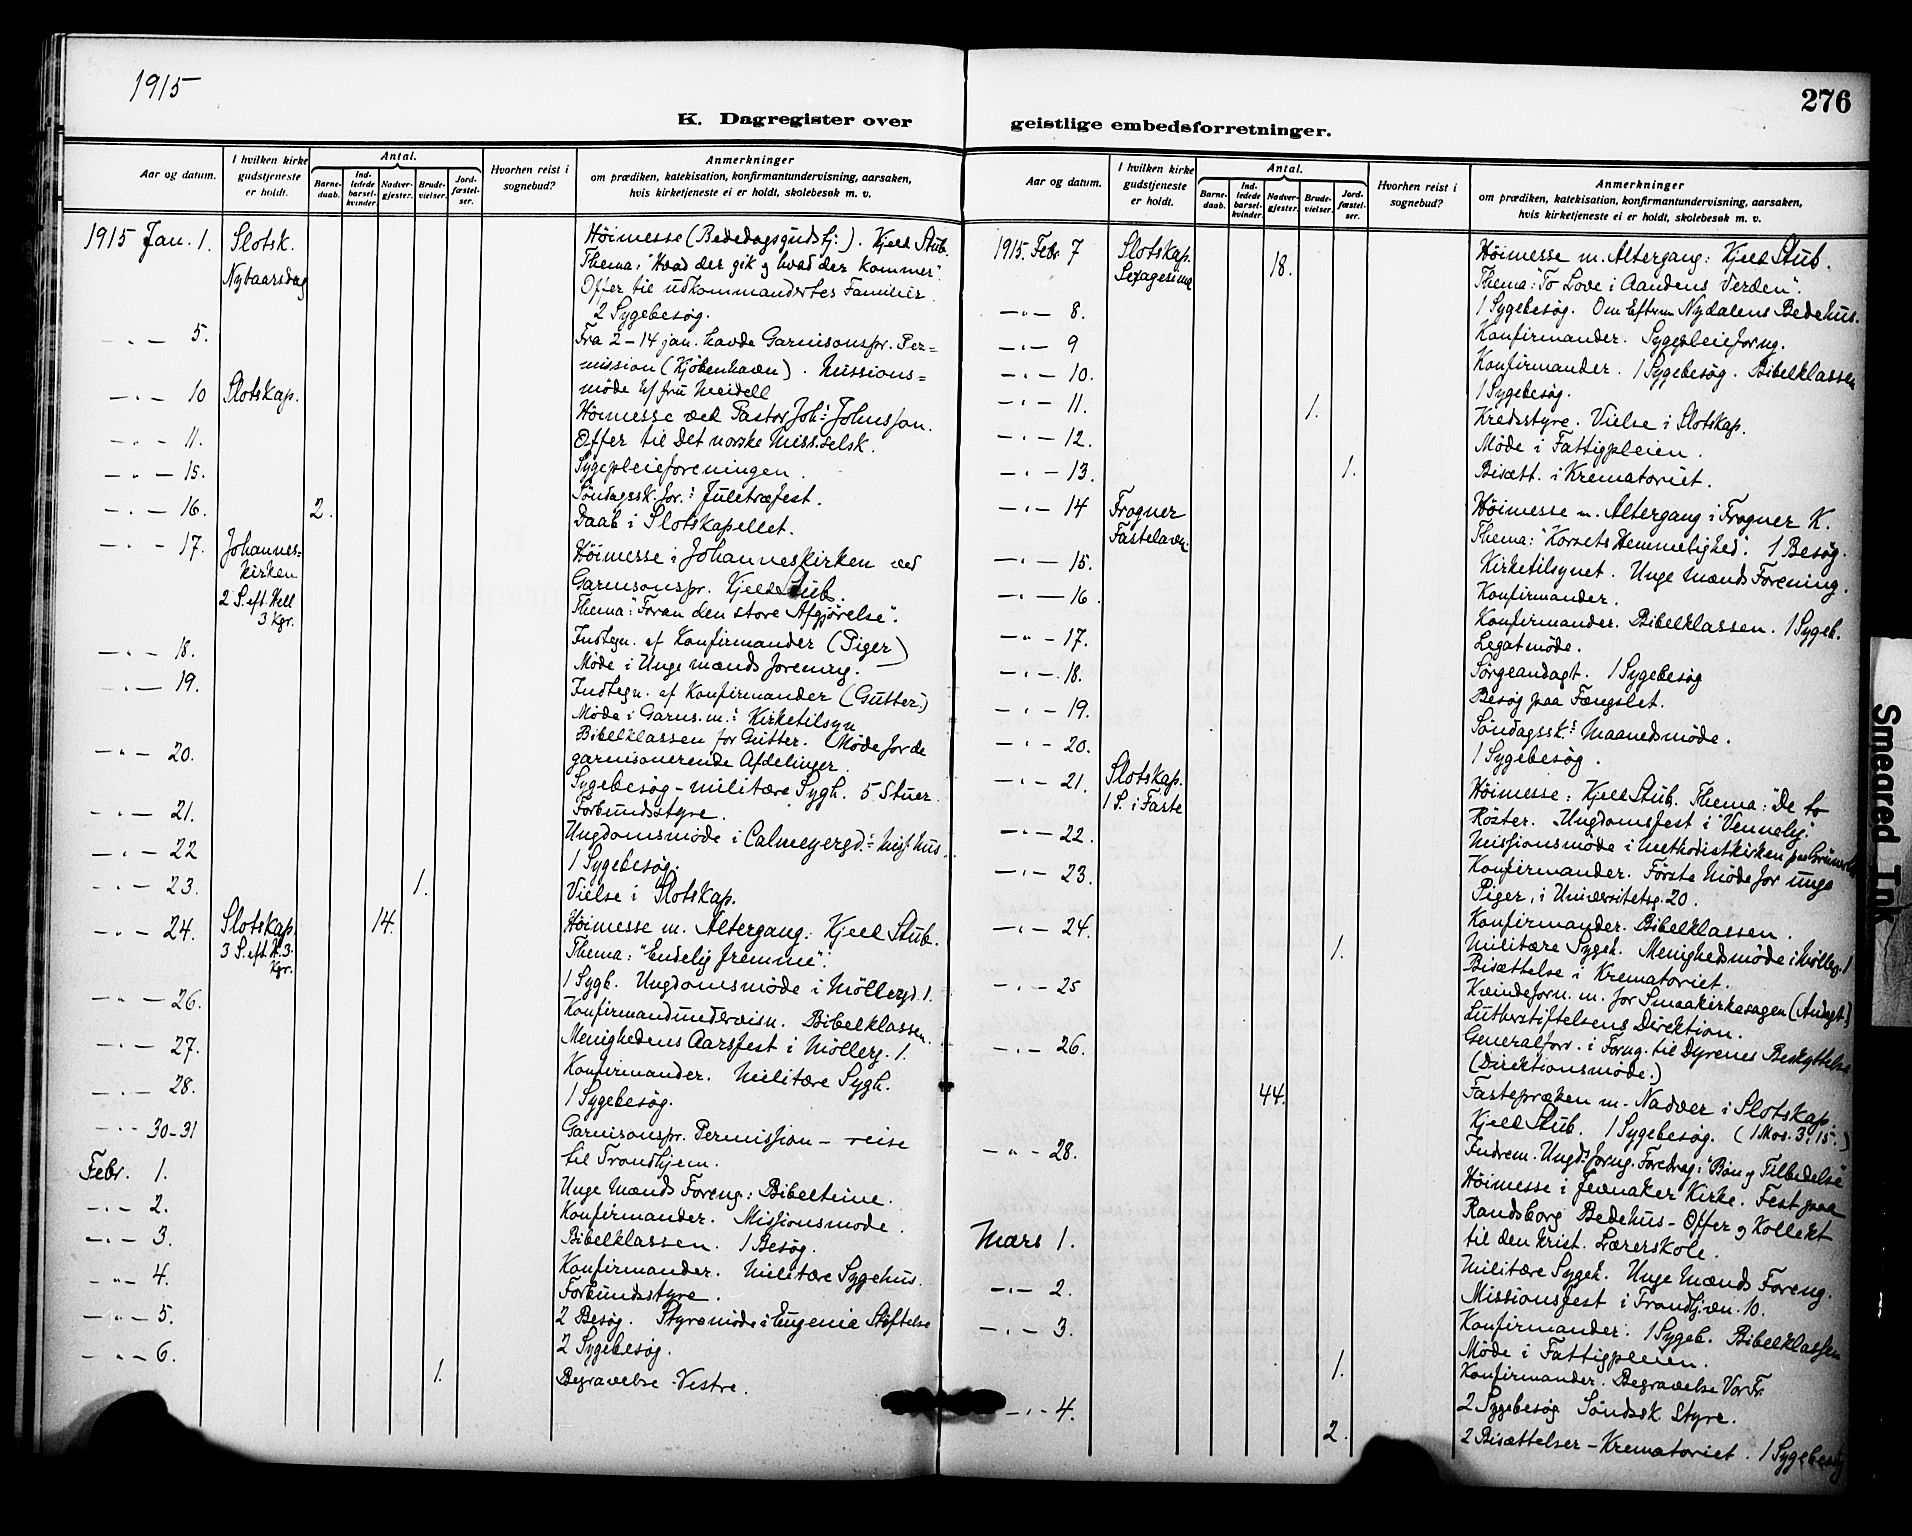 1915
276
K. Dagregister over geistlige embedsforretninger.
Aar og datum.
I hvilken kirke gudstjeneste er holdt.
Antal.
Barne-daab.
Ind-ledede barsel-kvinder.
Nadver-gjester.
Brude-vielser.
Jord-fæstel-ser.
Hvorhen reist i sognebud?
Anmerkninger
om prædiken, katekisation, konfirmantundervisning, aarsaken,
hvis kirketjeneste ei er holdt, skolebesøk m. v.
1915 Jan. 1. Slotsk. Høimesse (Bededagsgudstj:). Kjeld Stub.
Nytaarsdag Thema: "Hvad der gik og hvad der kommer".
Offer til udkommandertes Familier.
2 Sygebesøg.
5. Fra 2–14 jan. havde Garnisonspr. Per=
mission (Kjøbenhavn). Missions=
møde v/ fru Meidell
10 Slotskap. Høimesse ved Pastor Joh: Johnsson.
Offer til Det norske Miss.selsk.
11. Sygepleieforeningen.
15. Søndagssk. for: Juletræfest.
16. 2. Daab i Slotskapellet.
17. Johannes= Høimesse i Johanneskirken ved
kirken Garnisonspr. Kjeld Stub.
2 S. eft. Hell Thema: "Foran den store Afgjørelse".
3 Kgr.
18. Indtegn. af Konfirmander (Piger)
Møde i Unge Mænds Foreng.
19. Indtegn. af Konfirmander (Gutter)
Møde i Garns.m.: Kirketilsyn
20. Bibelklassen for Gutter. Møde for de
garnisonerende Afdelinger.
Sygebesøg – militære Sygh. 5 Stuer.
21. Forbundsstyre.
22 Ungdomsmøde i Calmeyergd: Miss.hus.
1 Sygebesøg.
23. 1. Vielse i Slotskap.
24. Slotskap. 14. Høimesse m. Altergang: Kjeld Stub.
3 S. eft H. 3. Kgr. Thema: "Endelig fremme".
1 Sygb. Ungdomsmøde i Møllergd. 1.
26. Konfirmandundervisn. Bibelklassen.
27. Menighedens Aarsfest i Møllerg. 1.
28. Konfirmander. Militære Sygh.
1 Sygebesøg.
30-31 Garnisonspr. Permission – reise
til Trondhjem.
Febr. 1. Unge Mænds Foreng: Bibeltime.
2. Konfirmander. Missionsmøde.
3. Bibelklassen. 1 Besøg.
4. Konfirmander. Militære Sygehus.
Forbundsstyre.
5. 2 Besøg. Styremøde i Eugenia Stiftelse
6. 2 Sygebesøg.
1. Begravelse – Vestre.
Aar og datum.
I hvilken kirke gudstjeneste er holdt.
Antal.
Barne-daab.
Ind-ledede barsel-kvinder.
Nadver-gjester.
Brude-vielser.
Jord-fæstel-ser.
Hvorhen reist i sognebud?
Anmerkninger
om prædiken, katekisation, konfirmantundervisning, aarsaken,
hvis kirketjeneste ei er holdt, skolebesøk m. v.
1915. Febr. 7 Slotskap. 18. Høimesse m. Altergang: Kjeld Stub.
Sexagesima Thema: "To Love i Aandens Verden".
8. 1 Sygebesøg. Om Efterm Nydalens Bedehus.
9 Konfirmander. Sygepleieforng.
10. Konfirmander. 1 Sygebesøg. Bibelklassen
1 Sygebesøg.
11. 1. Kredsstyre. Vielse i Slotskap.
12. Møde i Fattigpleien.
13. 1. Bisætt. i Krematoriet.
14 Frogner Høimesse m. Altergang i Frogner K.
Fastelavn. Thema: "Korsets Hemmelighed". 1 Besøg.
15. Kirketilsynet. Unge Mænds Forening.
16. Konfirmander.
17. Konfirmander. Bibelklassen. 1 Sygeb.
Legatmøde.
18. Sørgeandagt. 1 Sygebesøg
19. Besøg paa Fængslet.
20. Søndagssk: Maanedsmøde.
1 Sygebesøg.
21. Slotskap. Høimesse: Kjeld Stub. Thema: "De to
1 S. i Faste Røster. Ungdomsfest i "Vennelig".
22. Missionsmøde i Methodistkirken paa
23. Konfirmander. Første Møde for unge
Piger, i Universitetsg. 20.
24. Konfirmander. Bibelklassen.
1. Militære Sygeh. Menighedsmøde i Møllerg. 1
Bisættelse i Krematoriet.
25 Kvindeforn. m. for Smaakirkesagen (Andagt)
Lutherstiftelsens Direktion.
26. Generalforr. i Forng. til Dyrenes Beskyttelse
(Direktionsmøde.)
44. Fastepræken m. Nadver i Slotskap.
Kjeld Stub. 1 Sygebesøg. (1 Mos. 3, 15.)
28. Indrem. Ungd.forng. Foredrag: "Bøn og Tilbedelse"
Høimesse i Jevnaker Kirke. Fest paa
Randsborg Bedehus – Offer og Kollekt
til den krist. Lærerskole.
Mars 1. Militære Sygeh. Unge Mænds Foreng.
2. Missionsfest i Trondhjvn. 10.
3. Konfirmander. 1 Sygeb. Bibelklassen
Møde i Fattigpleien.
1. Konfirmander. Begravelse Vor Fr.
4. 2 Sygebesøg Søndssk. Styre.
2. 2 Bisættelser – Krematoriet. 1 Sygebesøg
Smeared Ink